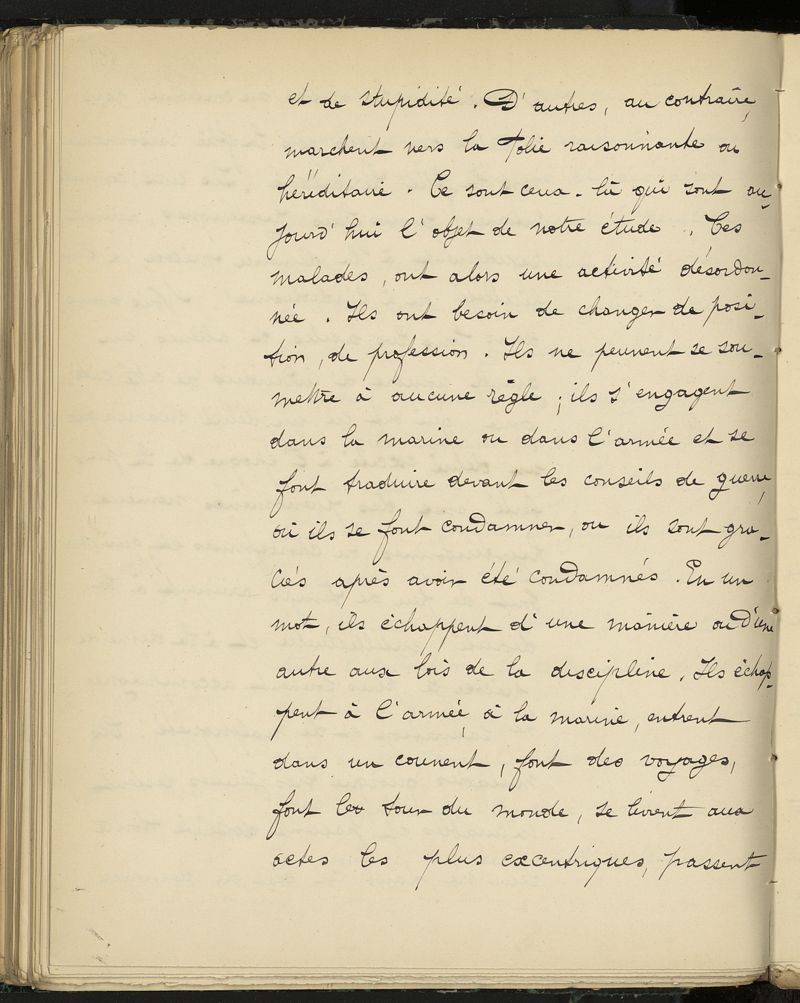 et de stupidité. D'autres, au contraire,
marchent vers la folie raisonnante ou
héréditaire. Ce sont ceux-là qui sont au-
jourd'hui l'objet de notre étude. Ces
malades, ont alors une activité désordon-
née. Ils ont besoin de changer de posi-
tion, de profession. Ils ne peuvent se sou-
mettre à aucune règle; ils s'engagent
dans la marine ou dans l'armée et se
font traduire devant les conseils de guerre,
où ils se font condamner, ou ils sont gra-
ciés après avoir été condamnés. En un
mot, ils échappent d'une manière ou d'une
autre aux lois de la discipline. Ils échap-
pent à l'armée, à la marine, entrent
dans un couvent, font des voyages,
font le tour du monde, se livrent aux
actes les plus excentriques, passent